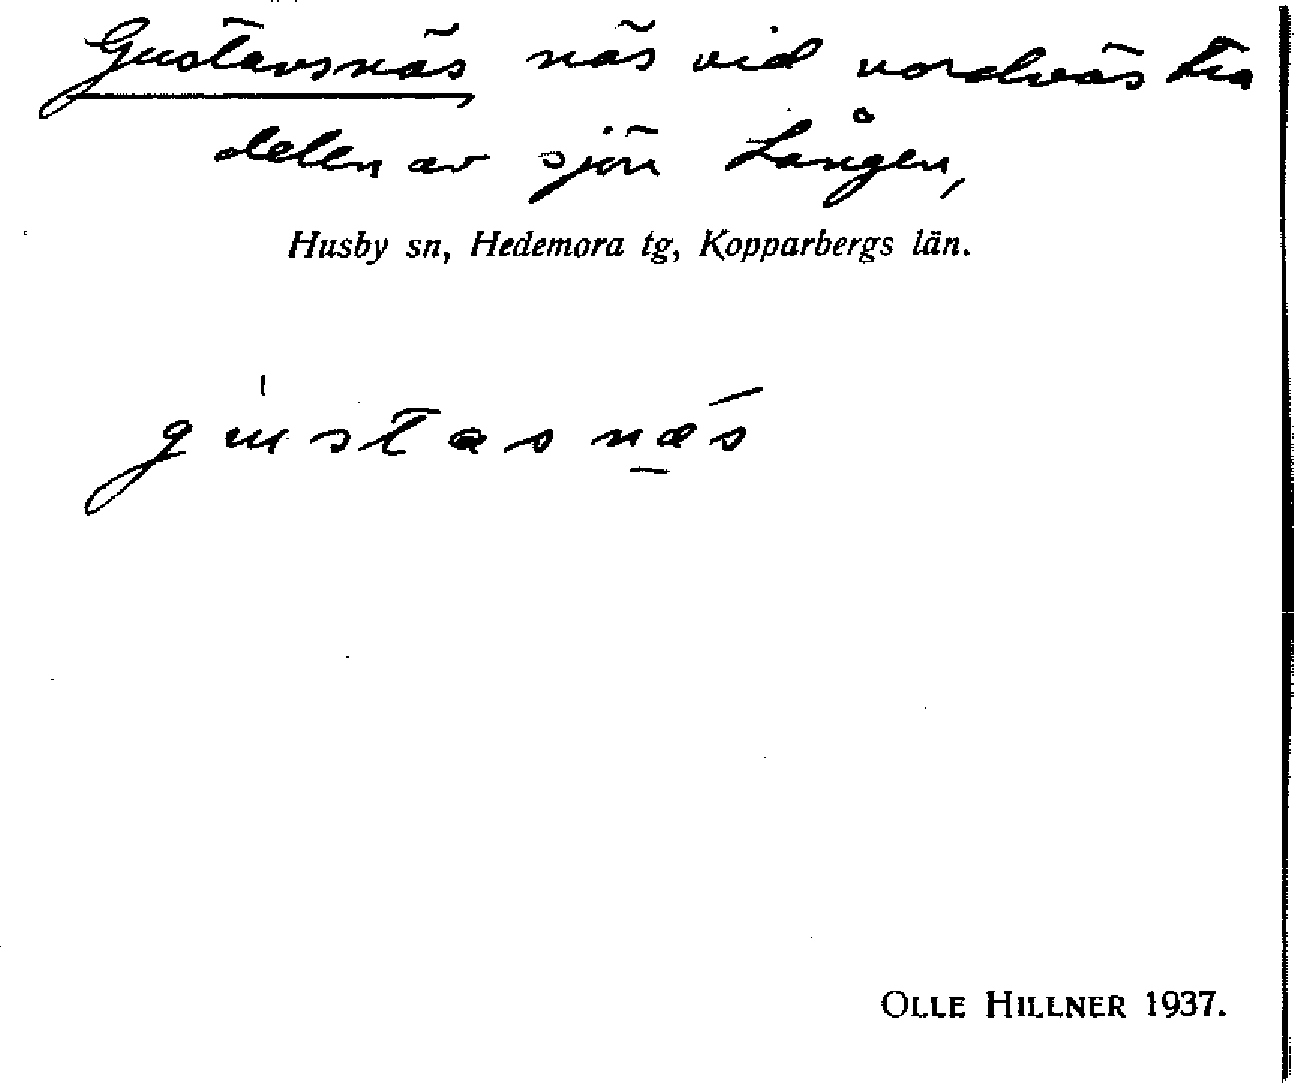 Gustavsnäs näs vid nordvästra
delen av sjön Lången,
Husby sn, Hedemora tg, Kopparbergs län.
gustasnæs
OLLE HILLNER 1937.